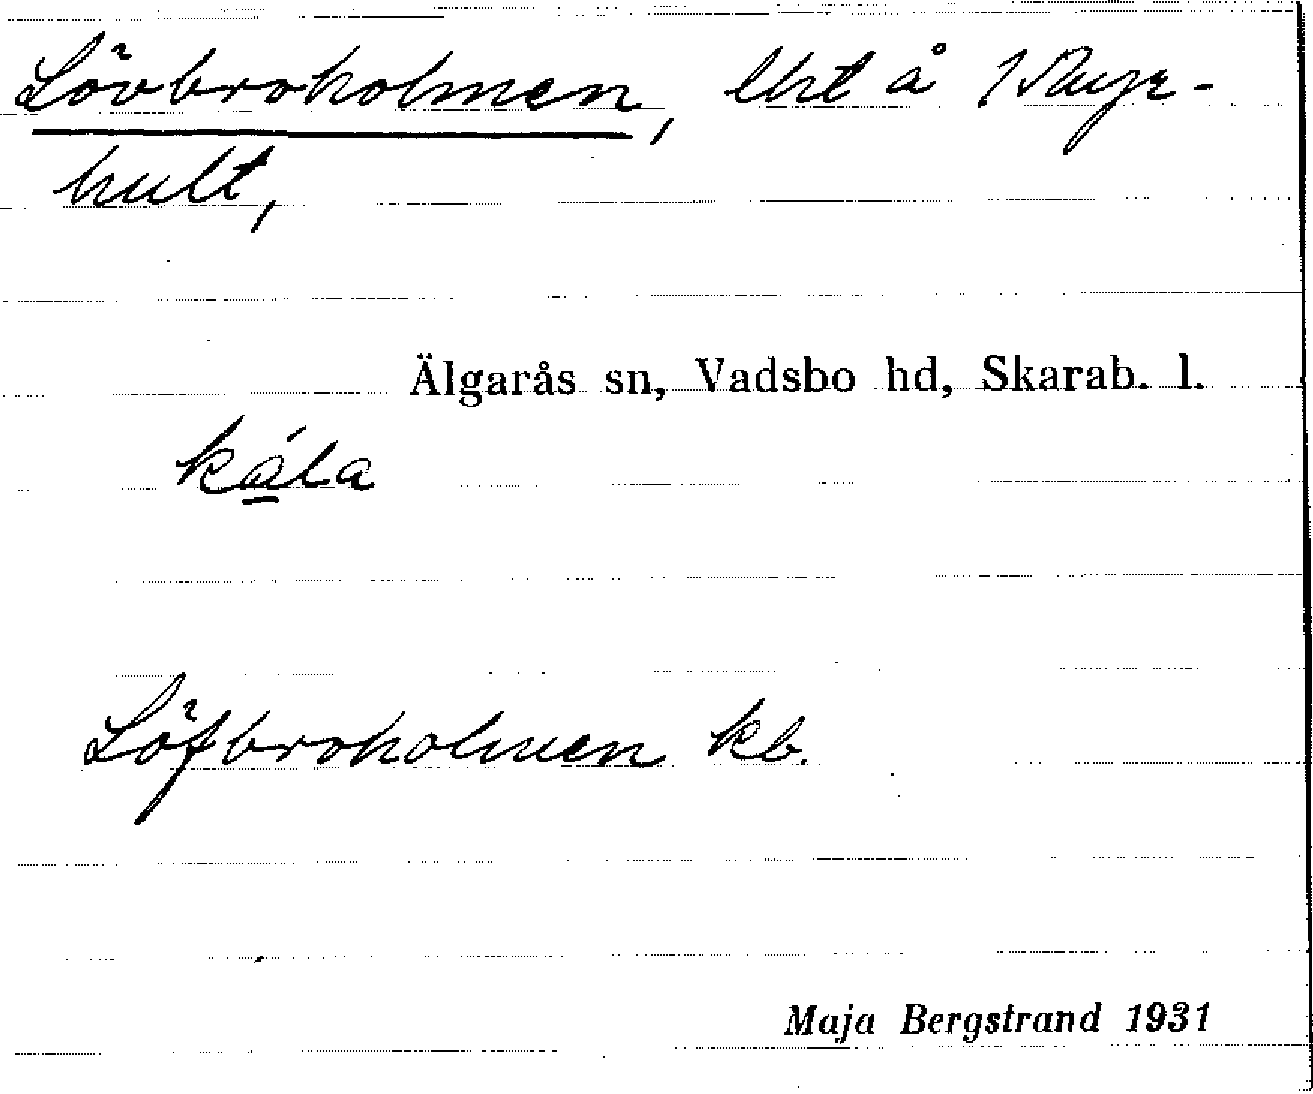 Lövbroholmen, lht å
hult,
Älgarås sn, Vadsbo hd, Skarab. l.
kåla
Löfbroholmen kb.
Maja Bergstrand 1931